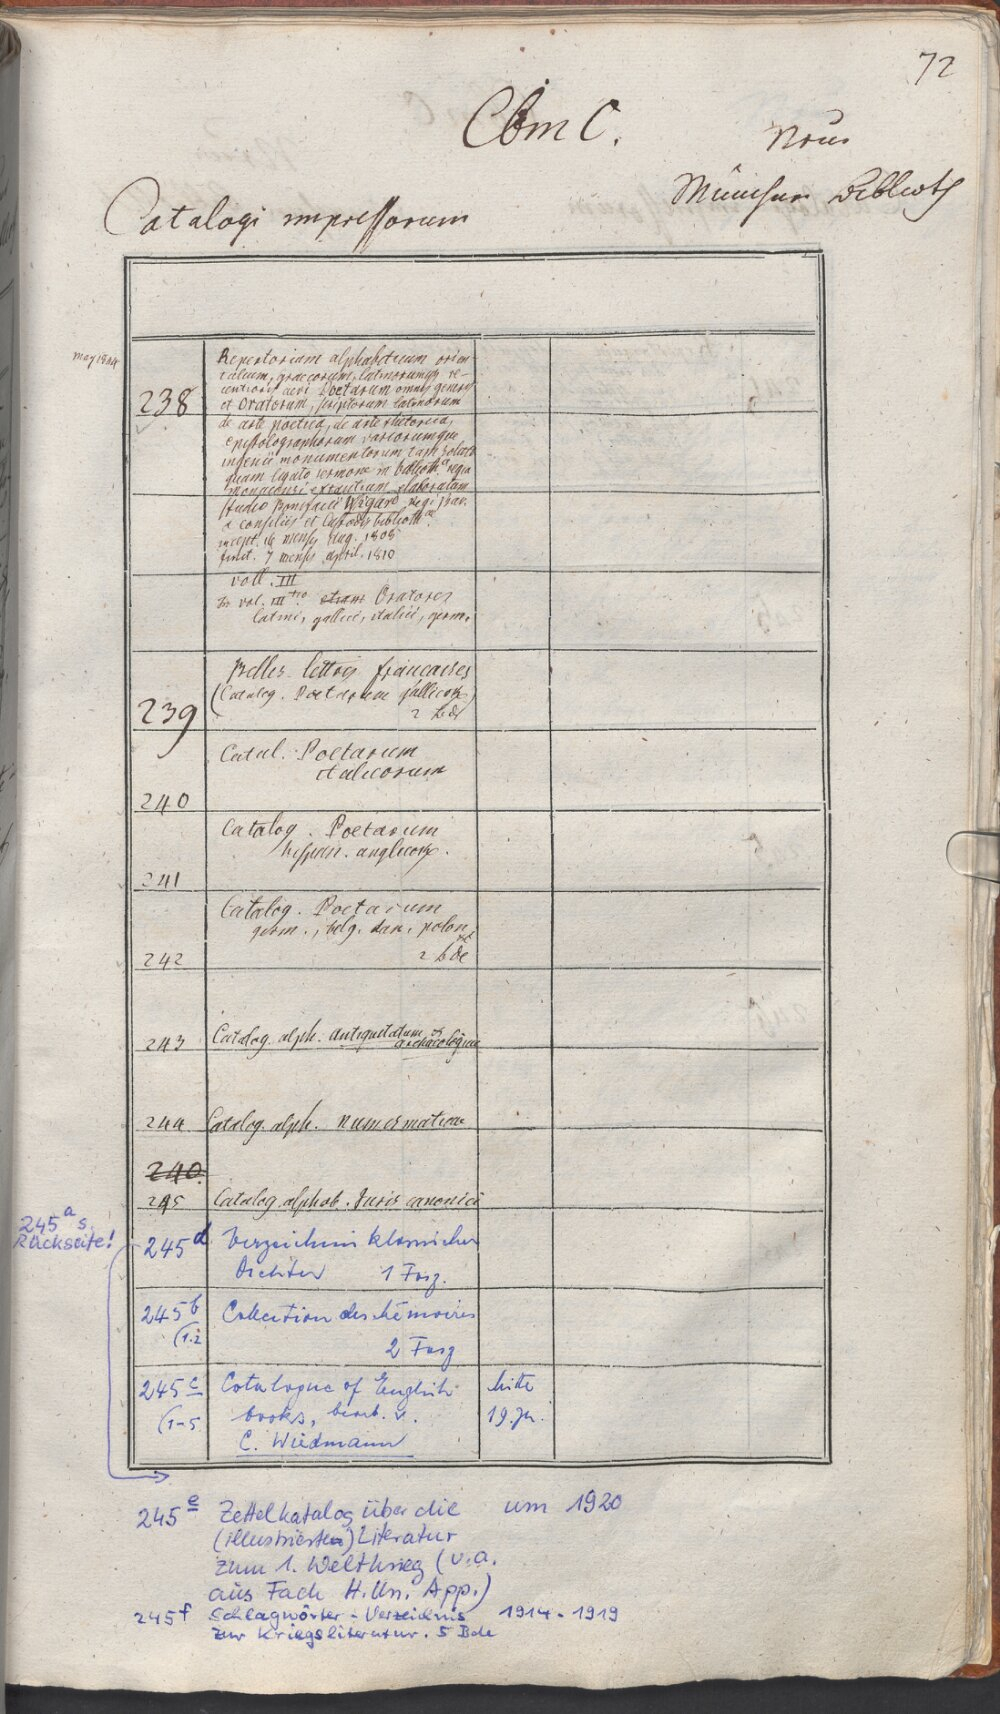 72
Cbm C.
Neue
Münchner Biblioth
Catalogi impressorum
may 1814
238
Repertorium alphabeticum orien-
talium, graecorum, latinorumq; re-
centioris aevi Poetarum omnis generis
et Oratorum, scriptorum latinorum
de arte poetica, de arte rhetorica,
epistolographorum variorumque
ingenii monumentorum tam soluto
quam ligato sermone in biblioth.a regia
monacensi exstantium elaboratum
studio Bonifacii Wigard Regi Bav.
a consiliis et Custodis biblioth.ae
incept. de mensis Aug. 1808
finit. 7 mensis april. 1810
voll. III
In vol. IIItio etiam Oratores
latini, gallici, italici, germ.
239
Belles lettres françaises
(Catalog. Poetarum gallicor.)
2 bde
240
Catal. Poetarum
italicorum
241
Catalog. Poetarum
hispan. anglicor.
242
Catalog. Poetarum
germ., belg. dan. polon.
2 bde
243
Catalog. alph. antiquitatum et
archaeologiae
244
Catalog. alph. numismaticae
240.
245
Catalog. alphab. Juris canonici
245a s.
Rückseite!
245d
Verzeichnis klassischer
Dichter 1 Fasz.
245b
(1.2
Collection des Mémoires
2 Fasz
245c
(1-5
Catalogue of English
books, bearb. v.
C. Wiedmann
Mitte
19. Jh.
245e Zettelkatalog über die um 1920
(illustrierte) Literatur
zum 1. Weltkrieg (v.a.
aus Fach H.Un. App.)
245f Schlagwörter-Verzeichnis 1914-1919
zur Kriegsliteratur. 5 Bde